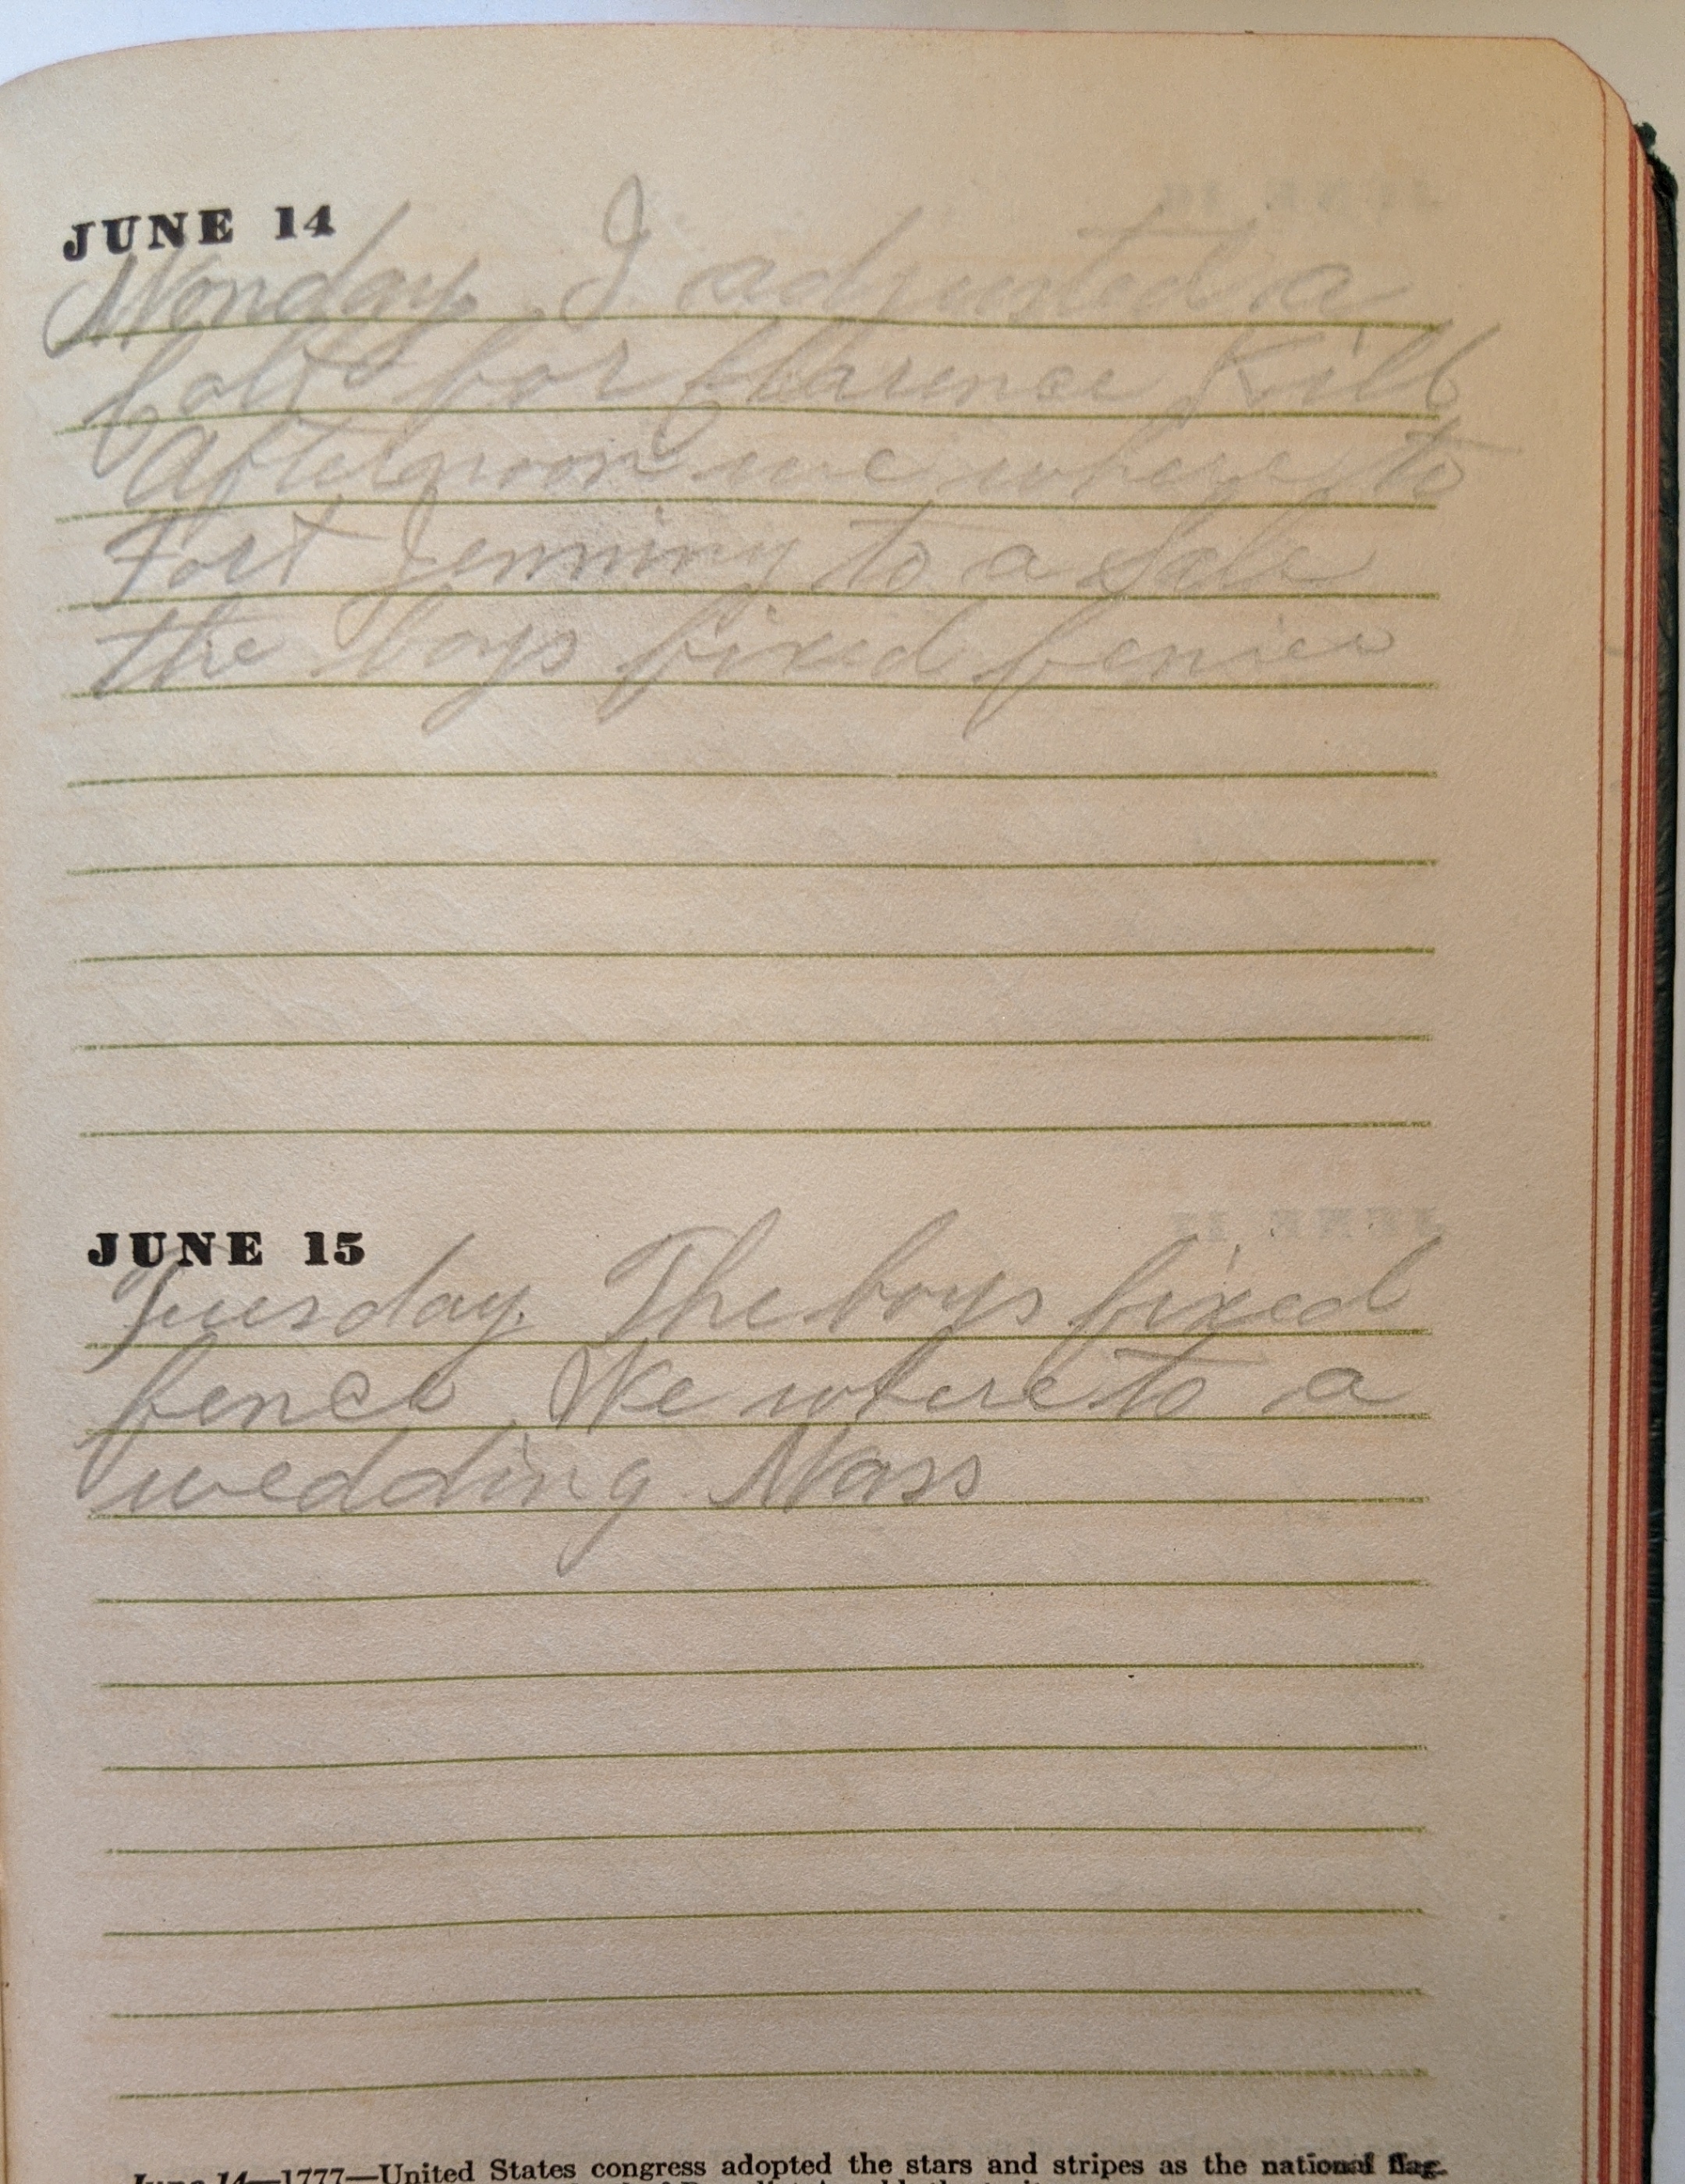 JUNE 14
Monday. I adjusted a
for Clarence Kill
Afternoon we where to
Fort Jenning to a Sale
the boys fixed fence
JUNE 15
Tuesday. The boys fixed
fence. We where to a
wedding Mass
June 14—1777—United States congress adopted the stars and stripes as the national flag.